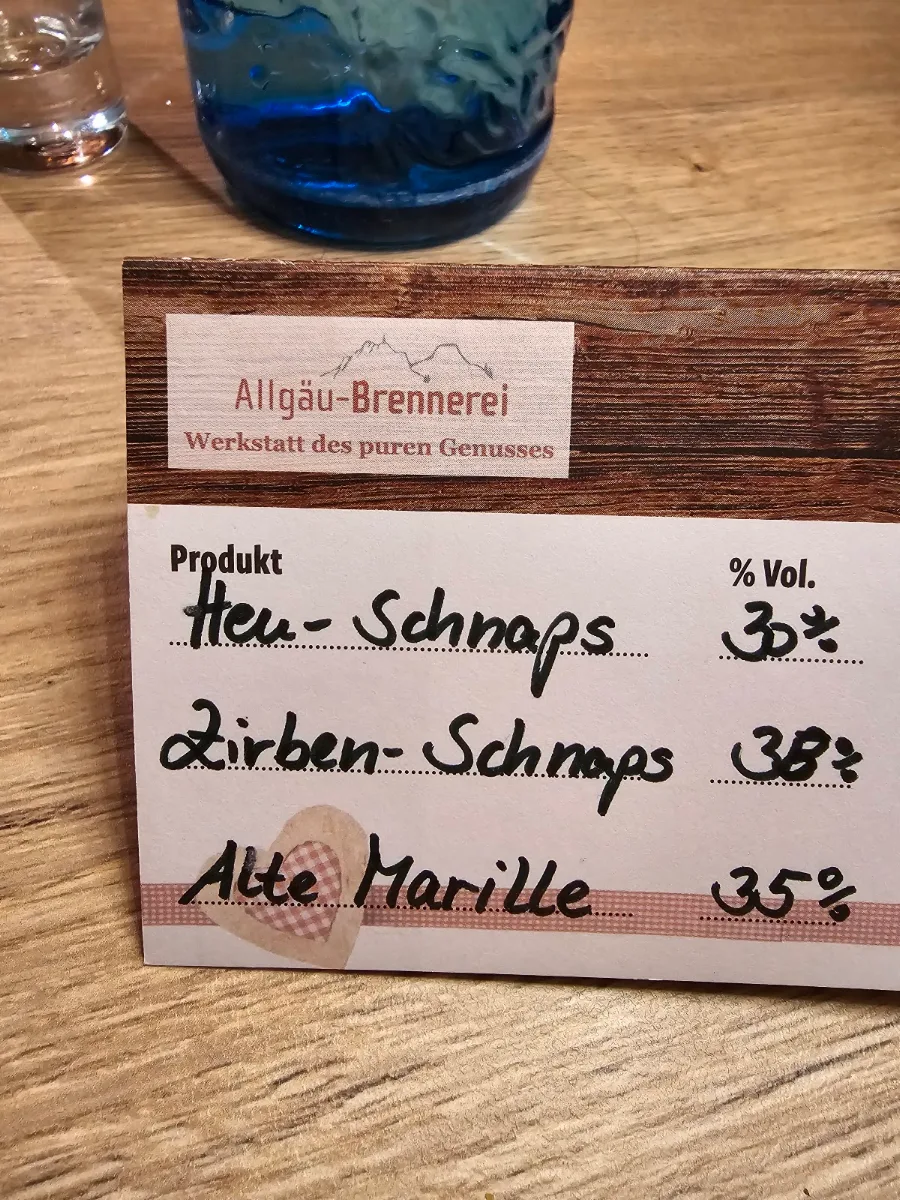 Allgäu-Brennerei
Werkstatt des puren Genusses
Produkt % Vol.
Heu-Schnaps 30%
Zirben-Schnaps 38%
Alte Marille 35%